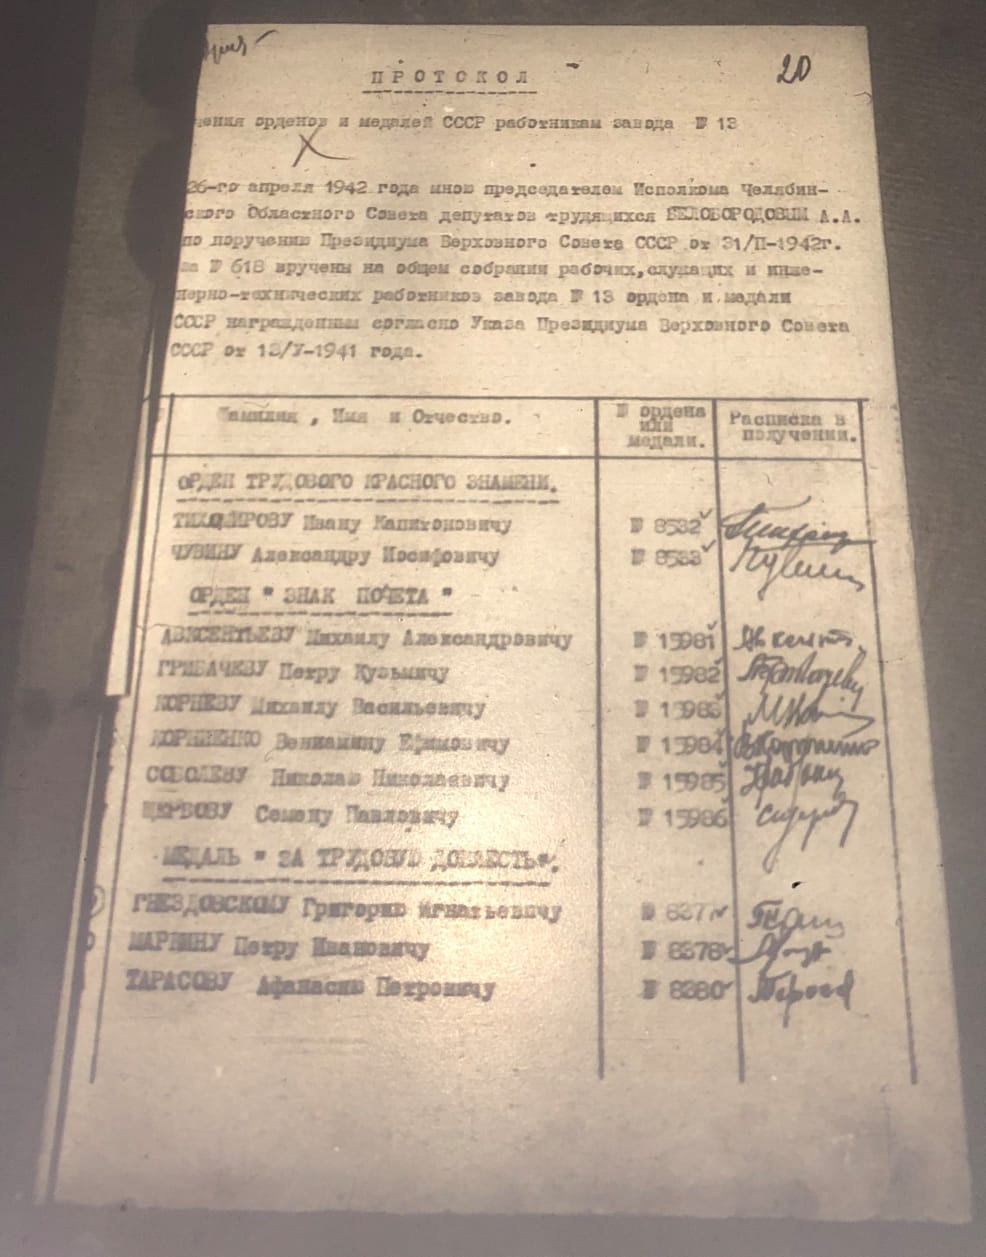 20
ПРОТОКОЛ
чения орденов и медалей СССР работникам завода № 13
26-го апреля 1942 года мною председателем Исполкома Челябин-
ского Областного Совета депутатов трудящихся БЕЛОБОРОДОВЫМ А.А.
по поручению Президиума Верховного Совета СССР от 31/П-1942г.
за № 618 вручены на общем собрании рабочих,служащих и инже-
нерно-технических работников завода № 13 ордена и медали
СССР награжденным согласно Указа Президиума Верховного Совета
СССР от 13/У-1941 года.
Фамилия, Имя и Отчество. № ордена или медали. Расписка в получении.
ОРДЕН ТРУДОВОГО КРАСНОГО ЗНАМЕНИ.
ТИХОМИРОВУ Ивану Капитоновичу № 8532
ЧУВИНУ Александру Иосифовичу № 8533
ОРДЕН "ЗНАК ПОЧЕТА"
АВКСЕНТЬЕВУ Михаилу Александровичу № 15981
ГРИБАЧЕВУ Петру Кузьмичу № 15982
КОРНЕВУ Михаилу Васильевичу № 15983
КОРНИЕНКО Вениамину Ефимовичу № 15984
СОБОЛЕВУ Николаю Николаевичу № 15985
ЩЕРБОВУ Семену Павловичу № 15986
МЕДАЛЬ "ЗА ТРУДОВУЮ ДОБЛЕСТЬ".
ГНЕЗДОВСКОМУ Григорию Игнатьевичу № 8377
МАРЬИНУ Петру Ивановичу № 8378
ТАРАСОВУ Афанасию Петровичу № 8380